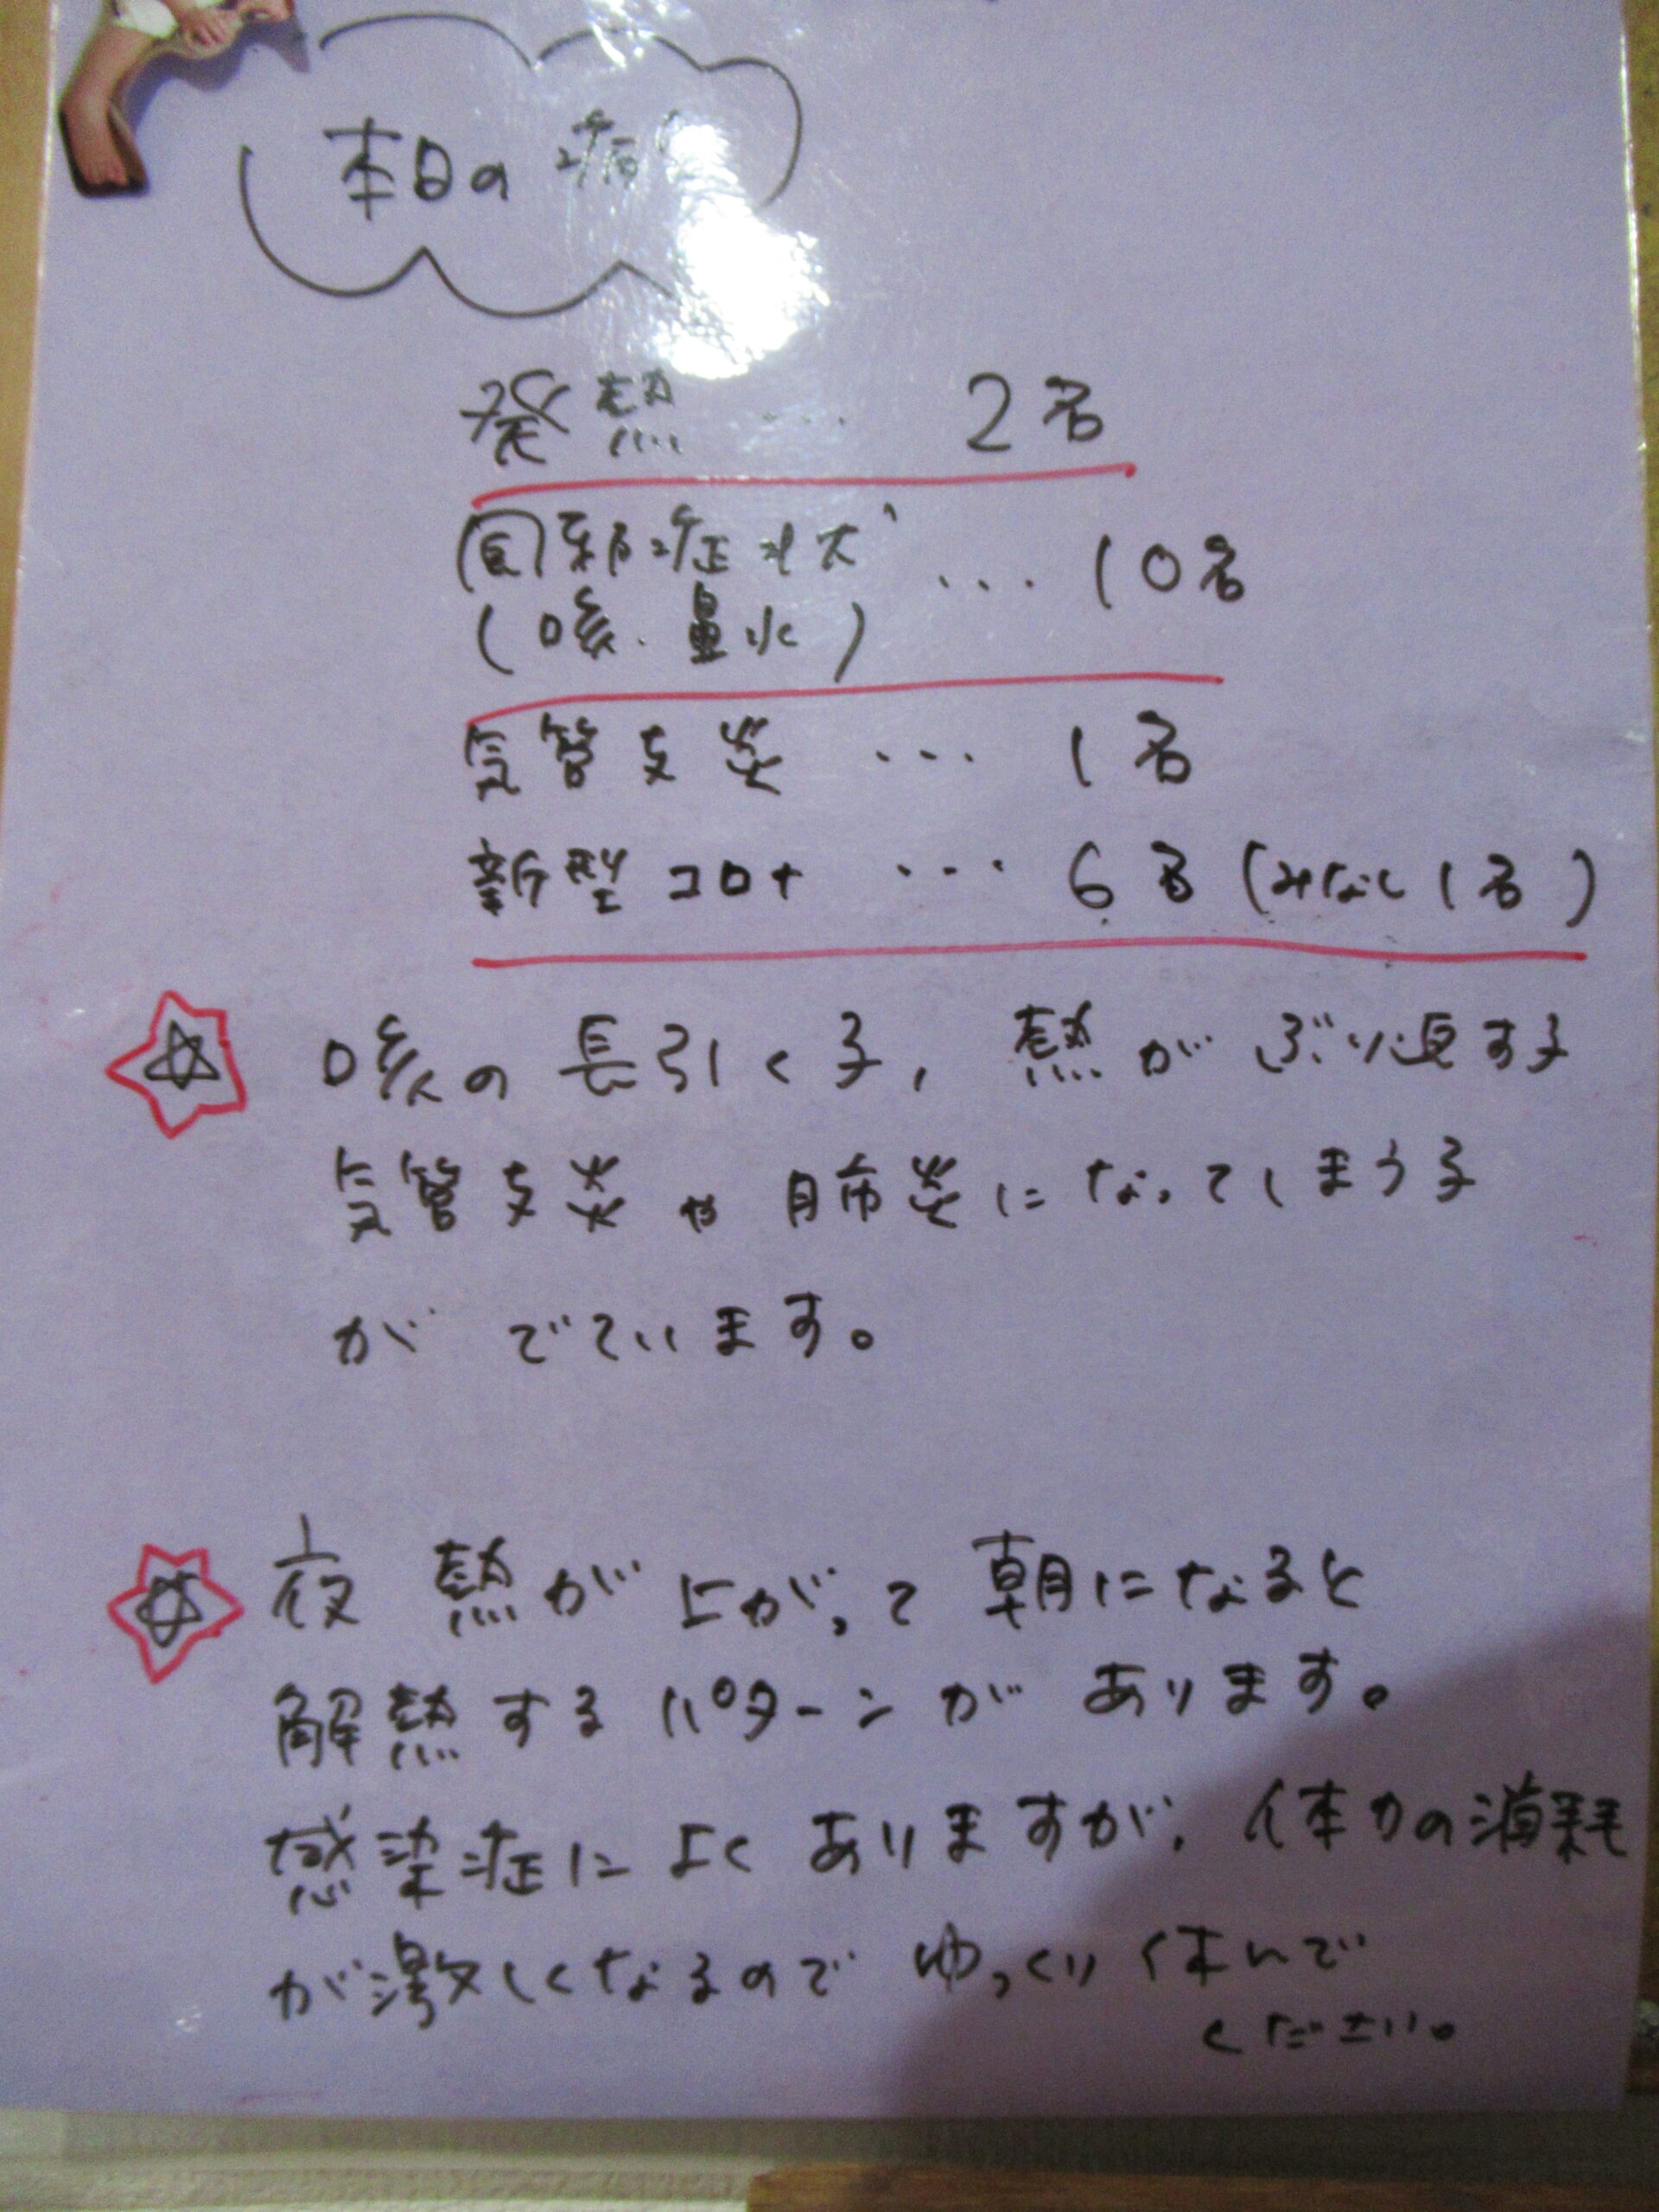 本日の病
発熱 … 2名
風邪症状 … 10名
(咳・鼻水)
気管支炎 … 1名
新型コロナ … 6名(みなし1名)
咳の長引く子、熱がぶり返す子
気管支炎や肺炎になってしまう子
がでています。
夜熱が上がって朝になると
解熱するパターンがあります。
感染症によくありますが、体力の消耗
が激しくなるのでゆっくり休んで
ください。